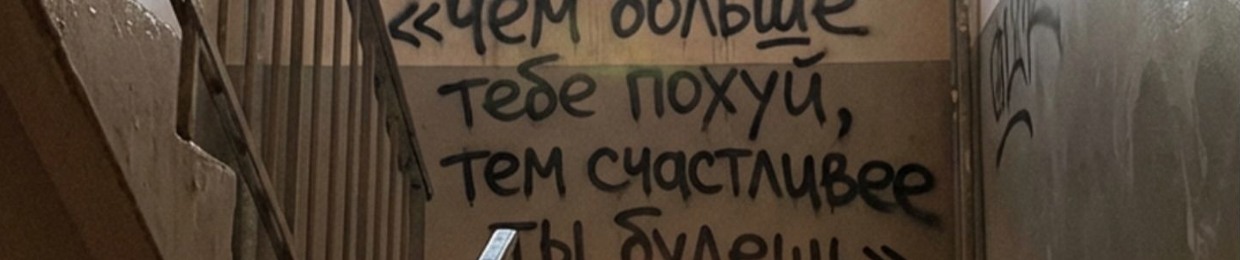 «Чем больше
тебе похуй,
тем счастливее
ты будешь»